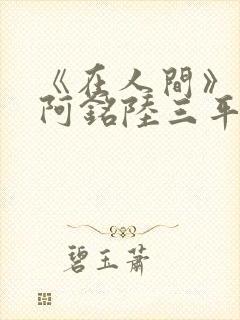 《在人間》
阿銘陸三平
碧玉蕭